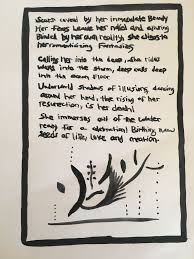 Scars cured by her immaculate Beauty
Her fears leave her naked and
Blinded by her own reality, she clings to
her romanticizing Fantasies
Calling her into the deep, she rides
waves into the storm, deep calls deep
into the ocean floor
Underworld shadows of illusions dancing
around her head, the rising of her
resurrection, is her death!
She immerses out of the water
ready for a celestial Birthing, new
seeds of life, love and creation.